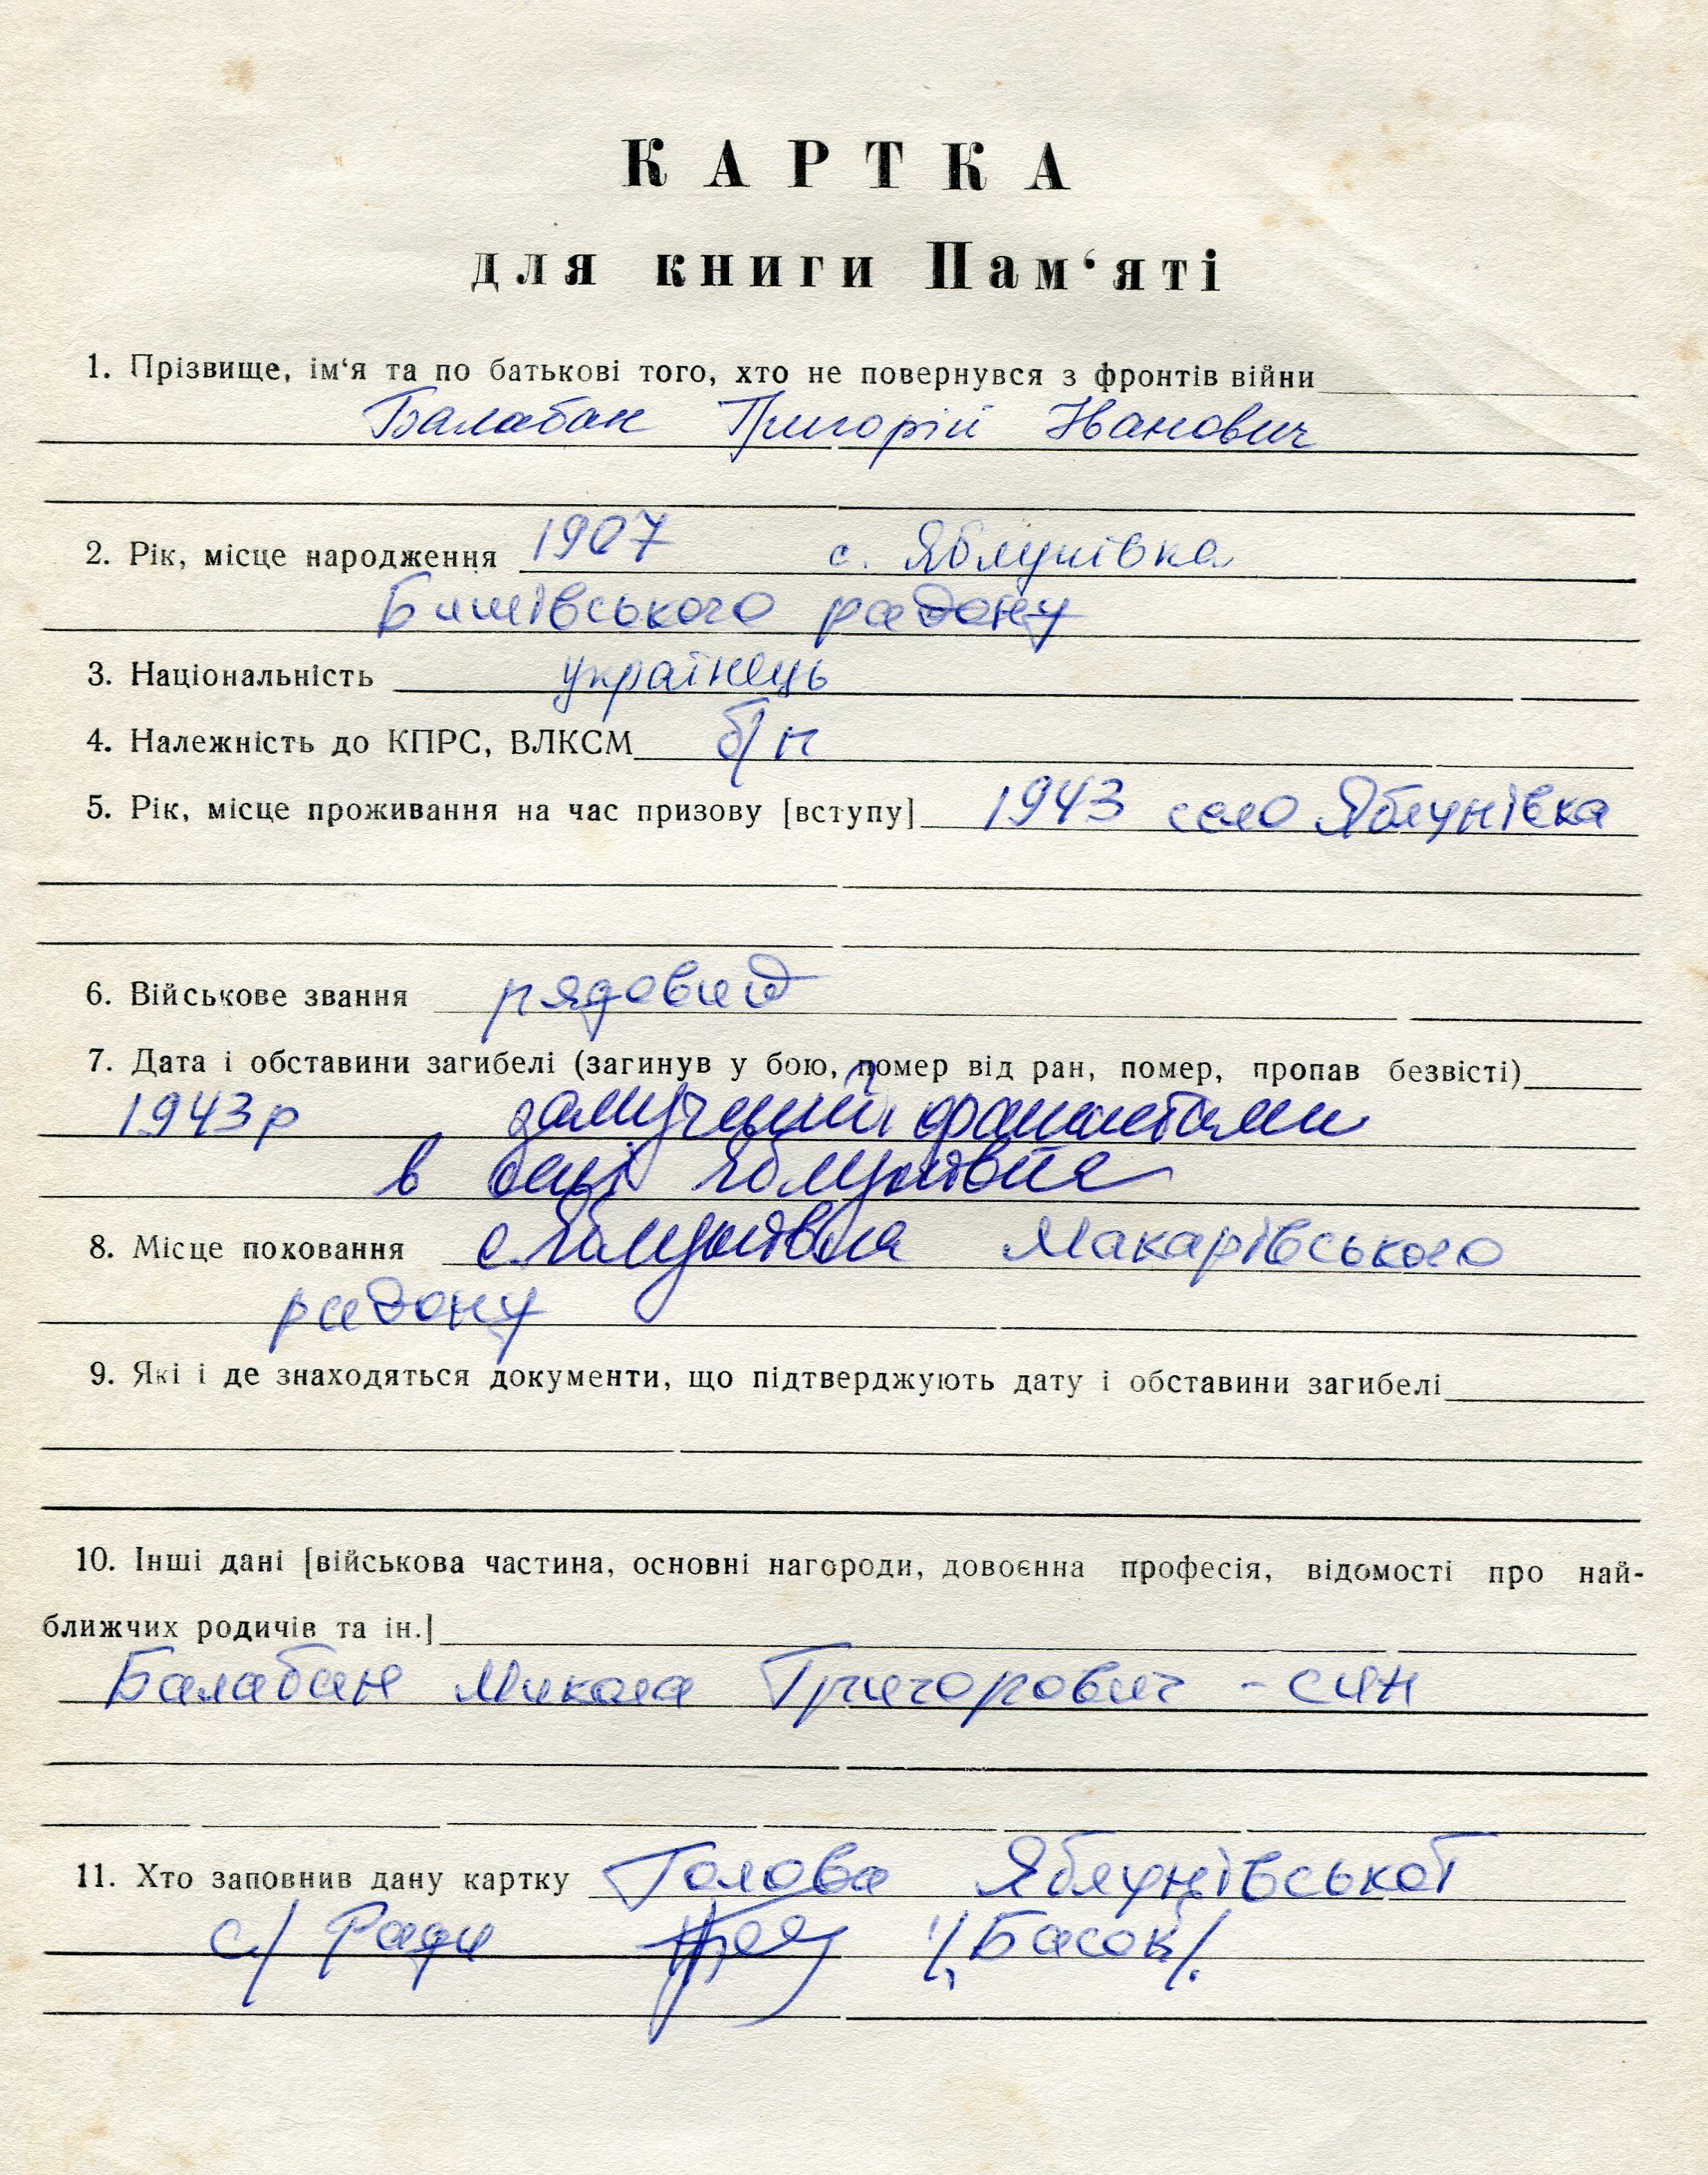 КАРТКА
для книги Пам‘яті
1. Прізвище, ім‘я та по батькові того, хто не повернувся з фронтів війни
Балабан Григорій Іванович
2. Рік, місце народження 1907 с. Яблунівка
Бишівського району
3. Національність українець
4. Належність до КПРС, ВЛКСМ б/п
5. Рік, місце проживання на час призову [вступу] 1943 село Яблунівка
6. Військове звання рядовий
7. Дата і обставини загибелі (загинув у бою, помер від ран, помер, пропав безвісті)
1943р замучений фашистами
в селі Яблунівка
8. Місце поховання с. Яблунівка Макарівського
району
9. Які і де знаходяться документи, що підтверджують дату і обставини загибелі
10. Інші дані [військова частина, основні нагороди, довоєнна професія, відомості про най-
ближчих родичів та ін.]
Балабан Микола Григорович - син
11. Хто заповнив дану картку Голова Яблунівської
с/Ради /Басок/